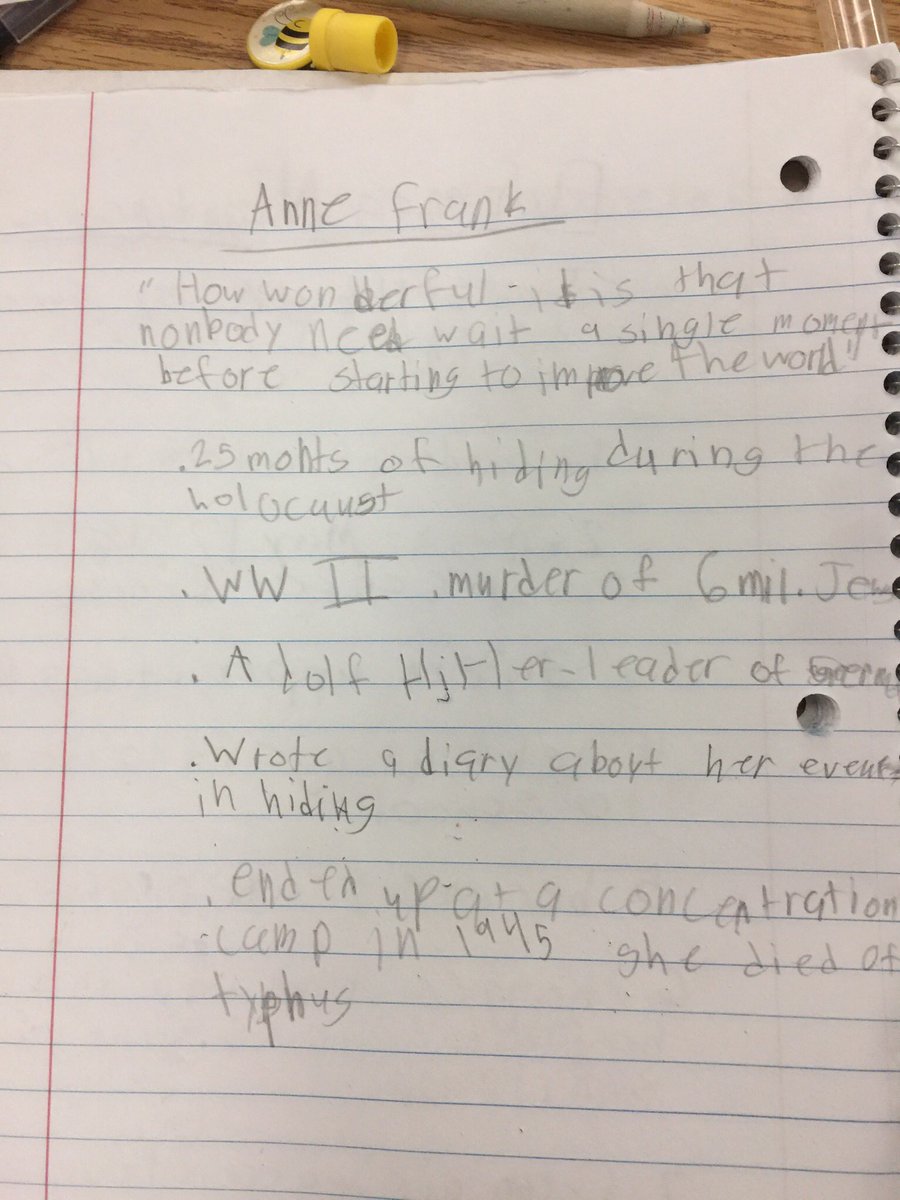 Anne Frank
"How wonderful it is that
nonbody need wait a single moment
before starting to improve the world"
.25 mohts of hiding during the
holocaust
.WW II .murder of 6 mil. Jews
.Adolf Hitler-leader of
.Wrote a diary about her events
in hiding
.ended up at a concentration
camp in 1945 she died of
typhus